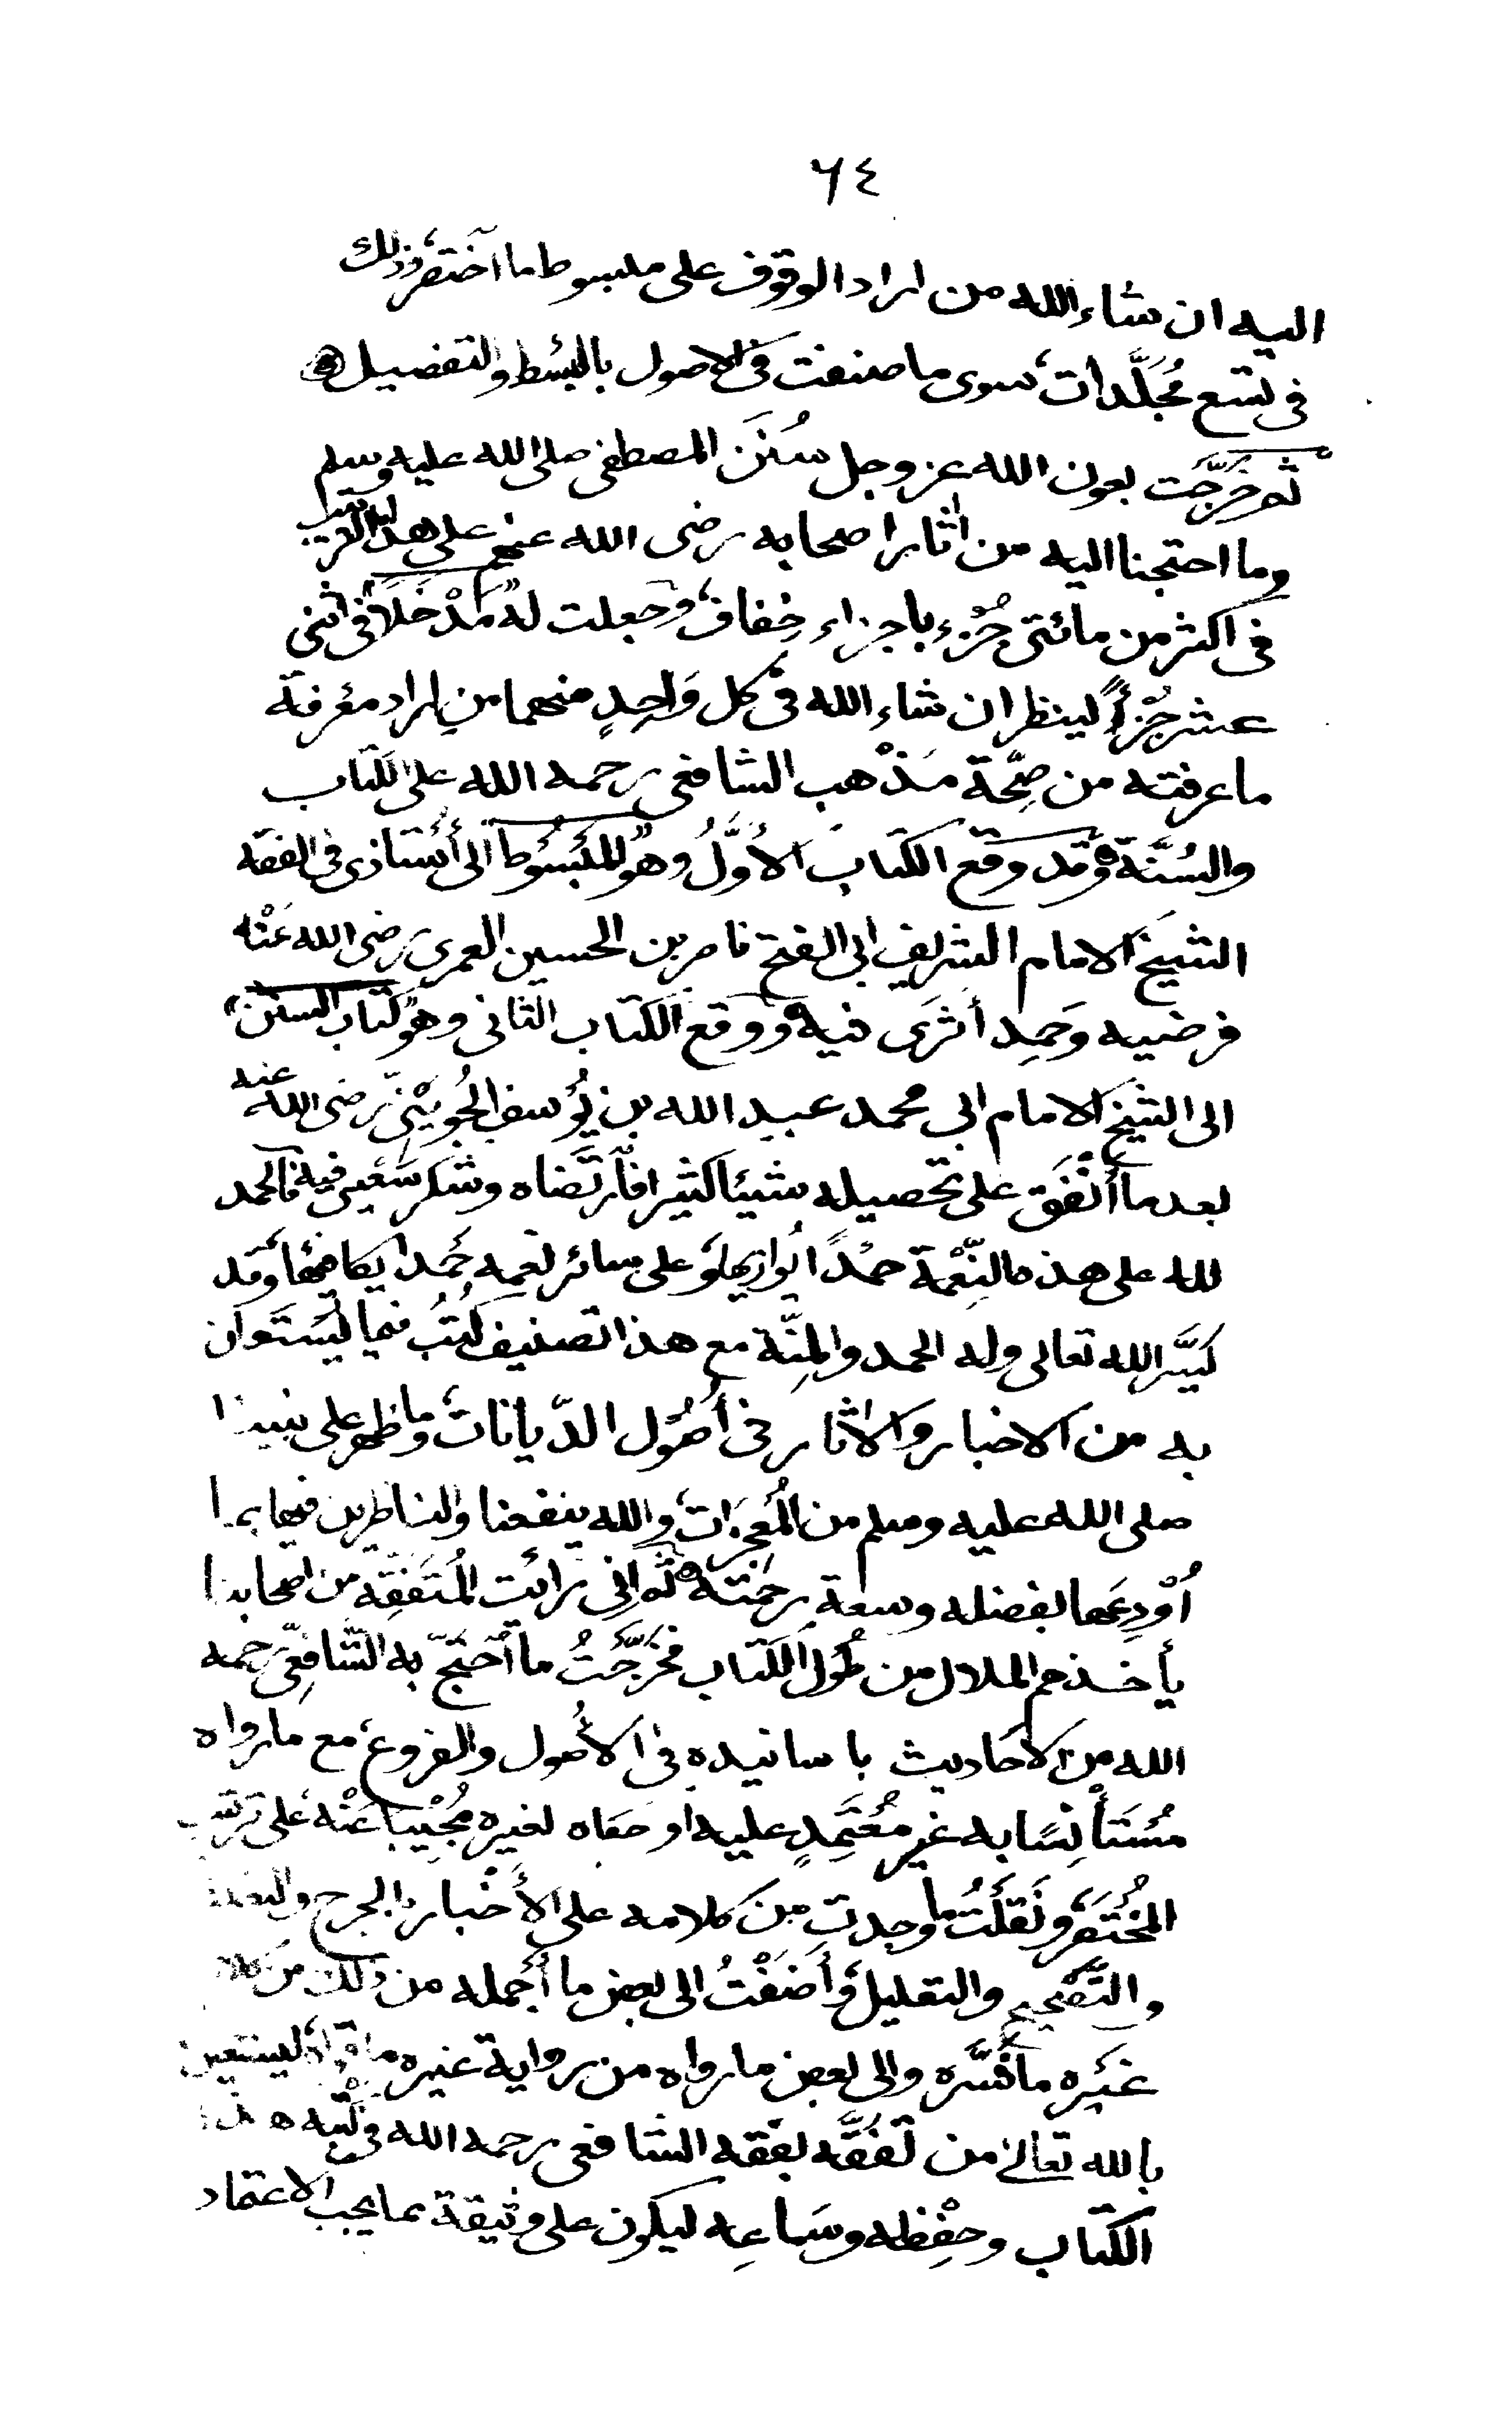 ٦٤
اليه ان شاء الله من اراد الوقوف على مبسوط ما اختصر وذلك
فى تسع مُجَلَّدات، سوى ما صنفت فى الاصول بالبسْط والتفضيل
ثم خرَّجت بعون الله عز وجل سُنَن المصطفى صلى الله عليه وسلم
وما احتجنا اليه من اثار اصحابه رضى الله عنهم على هذا الترتيب
فى اكثر من مائتى جُزء باجزاء خِفاف، وجعلت له مَدْخَلاً فى اثنى
عشر جُزأً لينظر ان شاء الله فى كل وَاحِدٍ منهما من اراد معْرفة
ما عرفته من صِحَّة مَذْهب الشافعى رحمه الله على الكتاب
والسُنَّة وقد وقع الكتاب الاوَّلُ وهو المبْسُوط الى أُستاذى فى الفقه
الشيخ الامام الشريف ابى الفتح ناصر بن الحسين العمرى رضى الله عَنْه
فرضيه وَحَمِد أثرَى فيه ووقع الكتاب الثانى وهو كتاب السنن
الى الشيخ الامام ابى محمد عبد الله بن يُوسف الجُوَيْنىّ رضى الله عنه
بعد ما أنْفَق على تحصيله شيئا كثيرا فأرتَضاه وشكر سَعْيى فيه فالحمد
لله على هذه النِّعْمَة حمْدًا يُوازيها وعلى سائر نعمه حَمدا يكافيها وقد
يَسَّر الله تعالى وله الحمد والمِنَّة مع هذا تصنيف كُتُب فيما يُسْتَعان
به من الاخبار والاثار فى أُصُول الدّيانات، وما ظهر على نبينا
صلى الله عليه وسلم من المُعجزَات، والله ينفعنا والناظرين فيها بما
أوْدِعَها بفضله وسعة رحمَته ثم انى رأيت المُتَفَقِّه من اصحابنا
يأخذهم الملال من طُول الكتاب فخَرَّجَتُ ما احْتَجّ به الشّافِعىّ رحمه
الله من الاحَاديث باسانيده فى الأُصول والفروع، مع ما رواه
مُسْتَأْنِسًا به غير مُعْتَمِدٍ عليه او حكاه لغيره مُجِيْبا عَنْه على ترتيب
المُخْتَصَر، ونَقَلْتُ ما وجدت من كلامه على الأَخْبار بالجرح والتعديل
والتَّصْحِيح والتعليل وأَضَفْتُ الى بعض ما أَجمله من ذلك من كلام
غَيْره ما فَسَّره والى بعض ما رواه من رواية غيره ما قواه ليستعين
بالله تعالى من تَفقَّه بفقه الشافعى رحمه الله فى كُتْبه هذا
الكتاب وحفْظِه وسَماعِه ليكون على وثيقة مما يجب الاعتماد